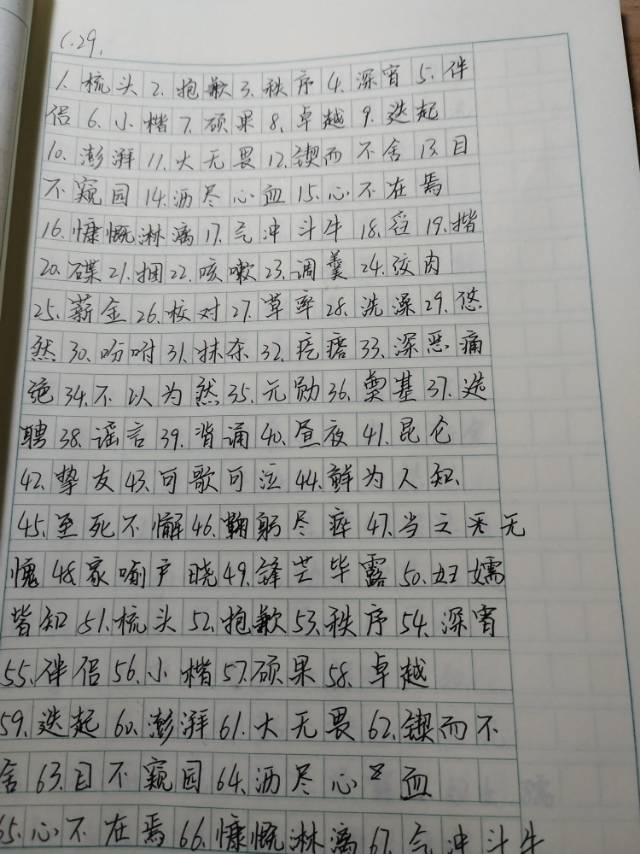 6.29.
1.梳头2.抱歉3.秩序4.深宵5.伴
侣6.小楷7.硕果8.卓越9.迭起
10.澎湃11.大无畏12.锲而不舍13.目
不窥园14.沥尽心血15.心不在焉
16.慷慨淋漓17.气冲斗牛18.19.揩
20.碟21.捆22.咳嗽23.调羹24.绞肉
25.薪金26.校对27.草率28.洗澡29.悠
然30.吩咐31.抹杀32.疙瘩33.深恶痛
绝34.不以为然35.元勋36.奠基37.选
聘38.谣言39.背诵40.昼夜41.昆仑
42.挚友43.可歌可泣44.鲜为人知
45.至死不懈46.鞠躬尽瘁47.当之无无
愧48.家喻户晓49.锋芒毕露50.妇孺
皆知51.梳头52.抱歉53.秩序54.深宵
55.伴侣56.小楷57.硕果58.卓越
59.迭起60.澎湃61.大无畏62.锲而不
舍63.目不窥园64.沥尽心血
65.心不在焉66.慷慨淋漓67.气冲斗牛